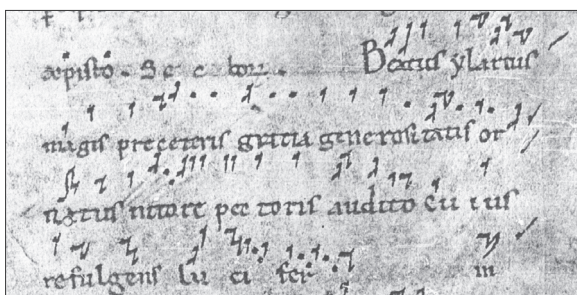 Beatus ylarius
magis pre ceteris gratia generositatis or
natus nitore pec toris audito cu ius
refulgens lu ci fer in